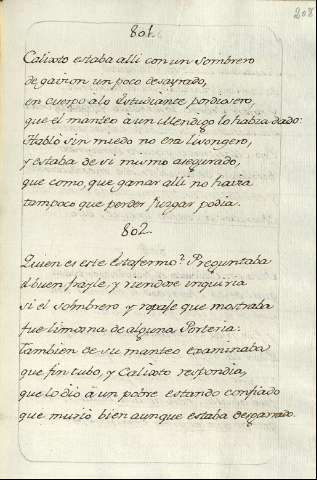 208
801.
Calixto estaba alli con un sombrero
de gavion un poco desayrado,
en cuerpo à lo Estudiante pordiosero,
que el manteo à un Mendigo lo habia dado:
Habló sin miedo no era lisongero,
y estaba de si mismo asegurado,
que como, que ganar alli no havia
tampoco que perder juzgar podia.
802.
Quien es este Estafermo? Preguntaba
el buen frayle, y riendose inquiria
si el sombrero y ropaje que mostraba
fue limosna de alguna Porteria:
Tambien de su manteo examinaba
que fin tubo, y Calixto respondia,
que lo dió à un pobre estando confiado
que murió bien aunque estaba desgarrado.